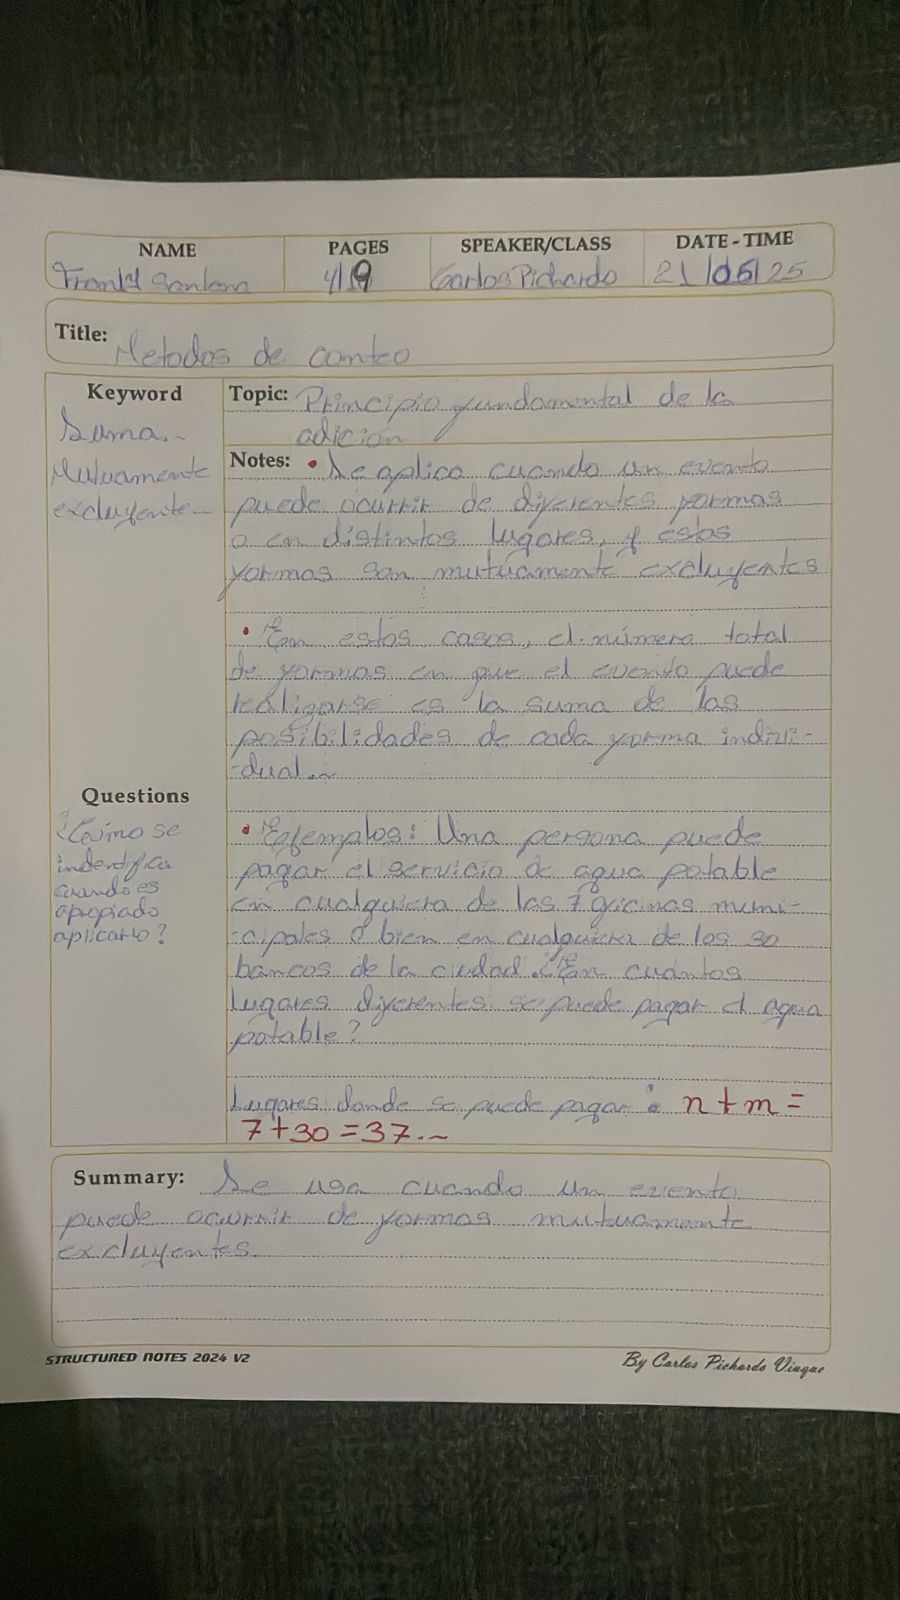 NAME PAGES SPEAKER/CLASS DATE - TIME
Santana 4/19 Carlos Pichardo 21/05/25
Title: Metodos de conteo
Keyword
Suma.~
Mutuamente
excluyente~
Topic: Principio fundamental de la
adición
Notes: • Se aplica cuando un evento
puede ocurrir de diferentes formas
o en distintos lugares, y estas
formas son mutuamente excluyentes
• En estos casos, el número total
de formas en que el evento puede
realizarse es la suma de las
posibilidades de cada forma indivi-
-dual.~
Questions
¿Cómo se
indentifica
cuando es
apropiado
aplicarlo?
• Ejemplos: Una persona puede
pagar el servicio de agua potable
en cualquiera de las 7 oficinas muni-
-cipales o bien en cualquiera de los 30
bancos de la ciudad. ¿En cuantos
lugares diferentes se puede pagar el agua
potable?
Lugares donde se puede pagar: n+m=
7+30=37.~
Summary: Se usa cuando un evento
puede ocurrir de formas mutuamente
excluyentes.
STRUCTURED NOTES 2024 V2
By Carlos Pichardo Viuque